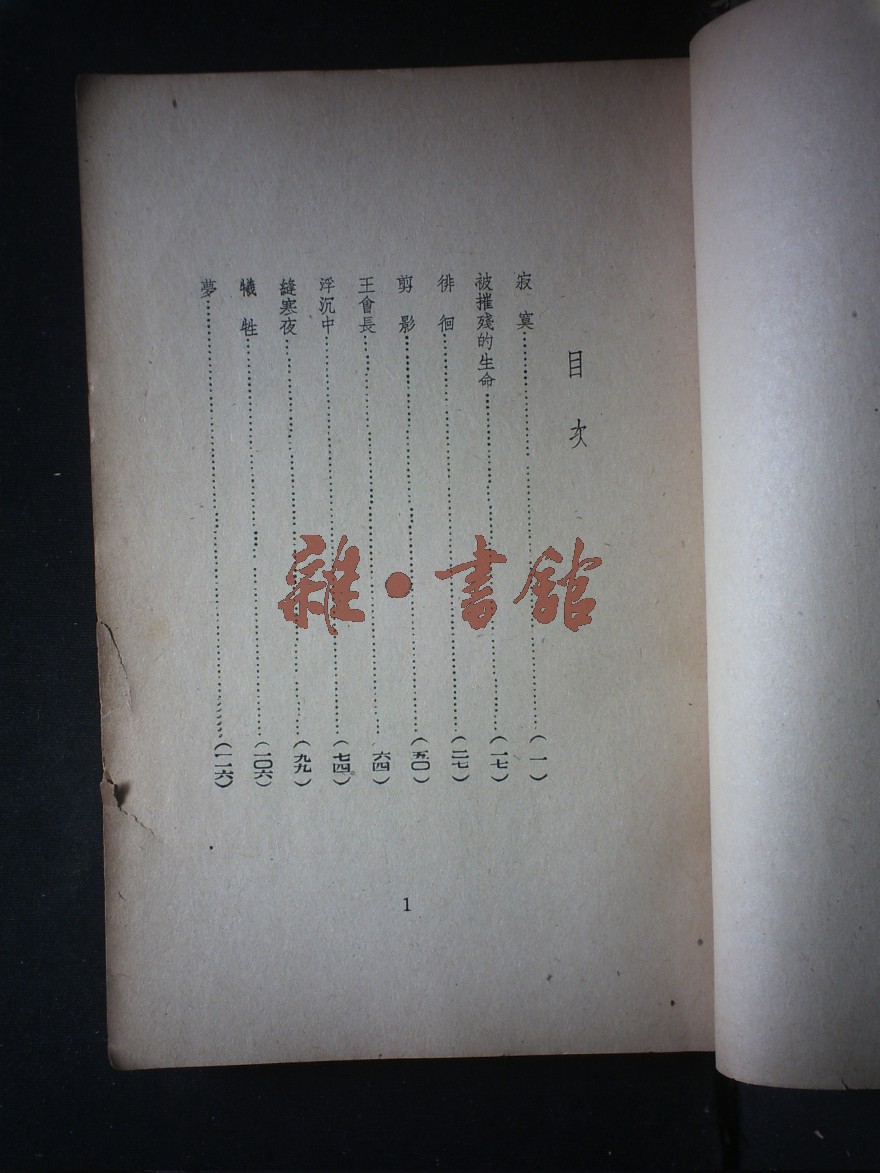 目次
寂寞……………(一)
被摧殘的生命……………(一七)
徘徊……………(二七)
剪影……………(五〇)
王會長……………(六四)
浮沉中……………(七四)
縫寒夜……………(九九)
犧牲……………(一〇六)
夢……………(一一六)
1
雜·書館